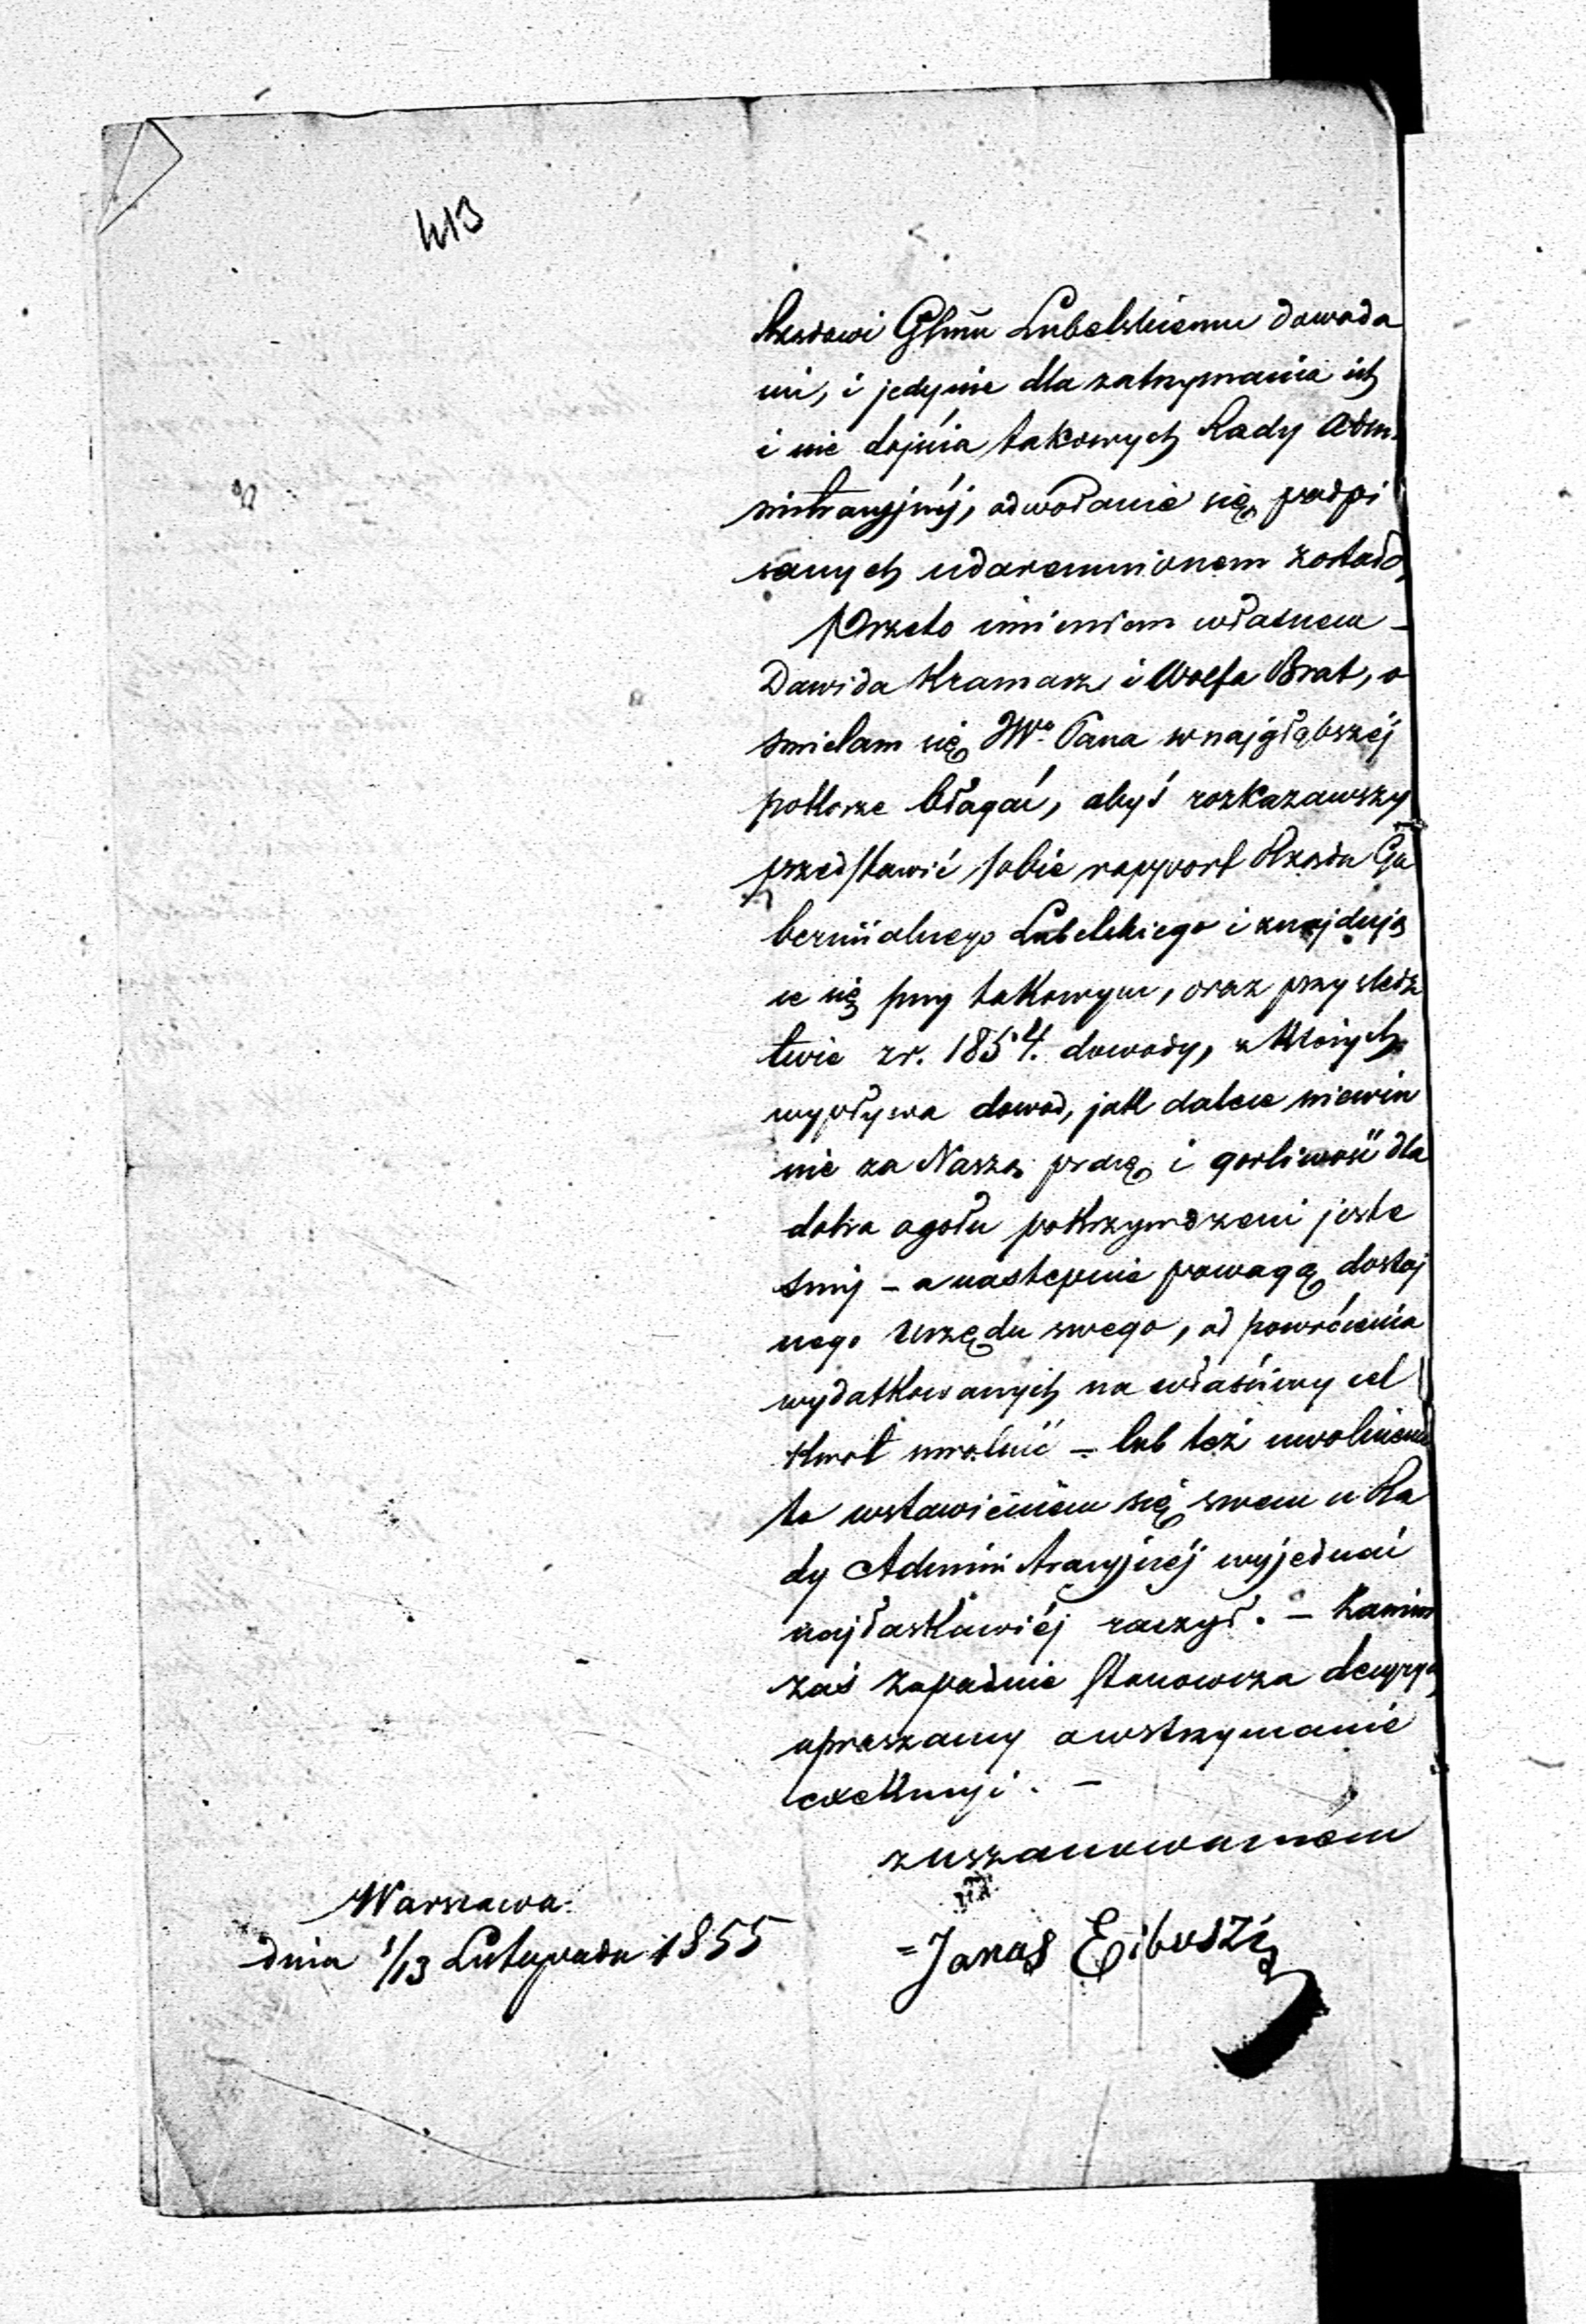 413
Rządowi Gbnu Lubelskiemu dowoda
mi, i jedynie dla zatrzymania ich
i nie dojścia takowych Rady Adm.
nistracyjnéj, odwołanie się podpi
sanych udaremnionem zostało,
Przeto imieniem własnem –
Dawida Kramarz i Wolfa Brat, o
smielam się JWo. Pana w najgłębszéj
pokorze błagać, abyś rozkazawszy
przedstawić sobie rapport Rządu Gu
bernialnego Lubelskiego i znajdują
ce się przy takowym, oraz przy śledz
twie z r. 1854. dowody, z których
wypływa dowod, jak dalece niewin
nie za Naszą pracę i gorliwość dla
dobra ogołu pokrzywdzeni jeste
smy – a następnie powagą dostoj
nego Urzędu swego, od powrócenia
wydatkowanych na właściwy cel
kwot uwolnić – lub też uwolnienie
to wstawieniem się swem u Ra
dy Administracyjnéj wyjednać
najłaskawiéj raczył. – Zanim
zaś zapadnie stanowcza decyzya,
upraszamy o wstrzymanie
exekucyi. –
z uszanowaniem
Warszawa
dnia 1/13 Listopada 1855
=Janas Eibuszyc